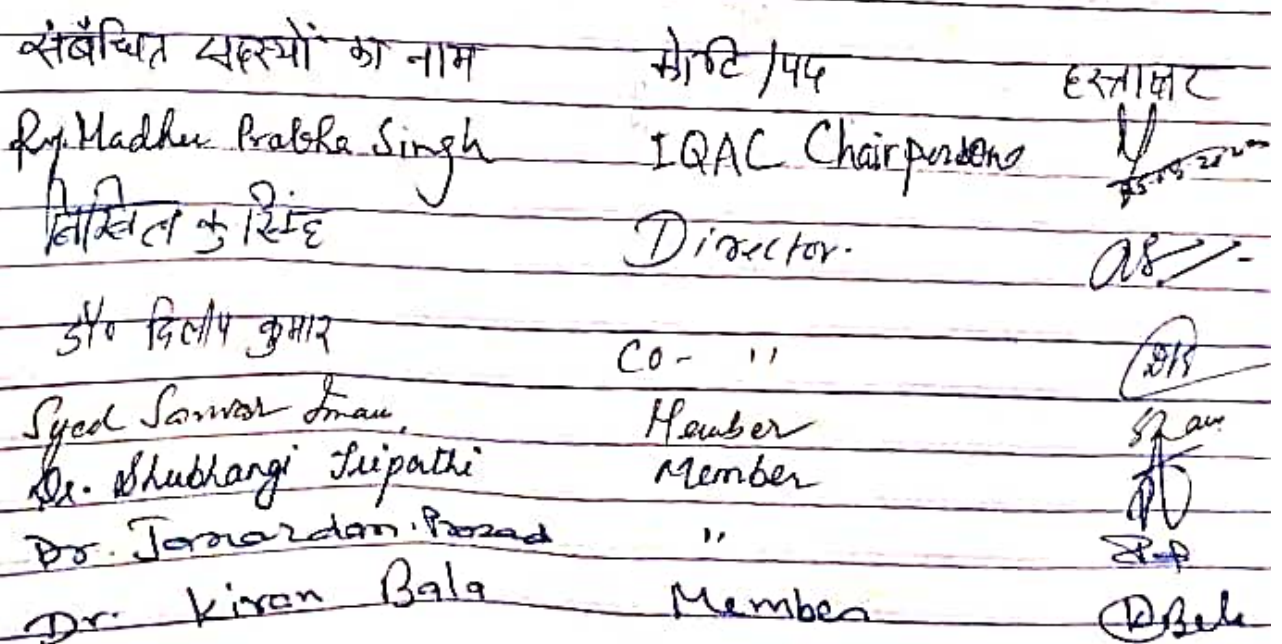 संबंधित सदस्यों का नाम कोटि/पद हस्ताक्षर
Madhu Prabha Singh IQAC Chairperson
निखिल कु सिंह Director.
डॉ० दिलीप कुमार CO- " DK
Syed Sarwar Imam, Member
Dr. Shubhangi Tripathi Member
Dr. Janardan Prasad "
Dr. Kiran Bala Member KBala